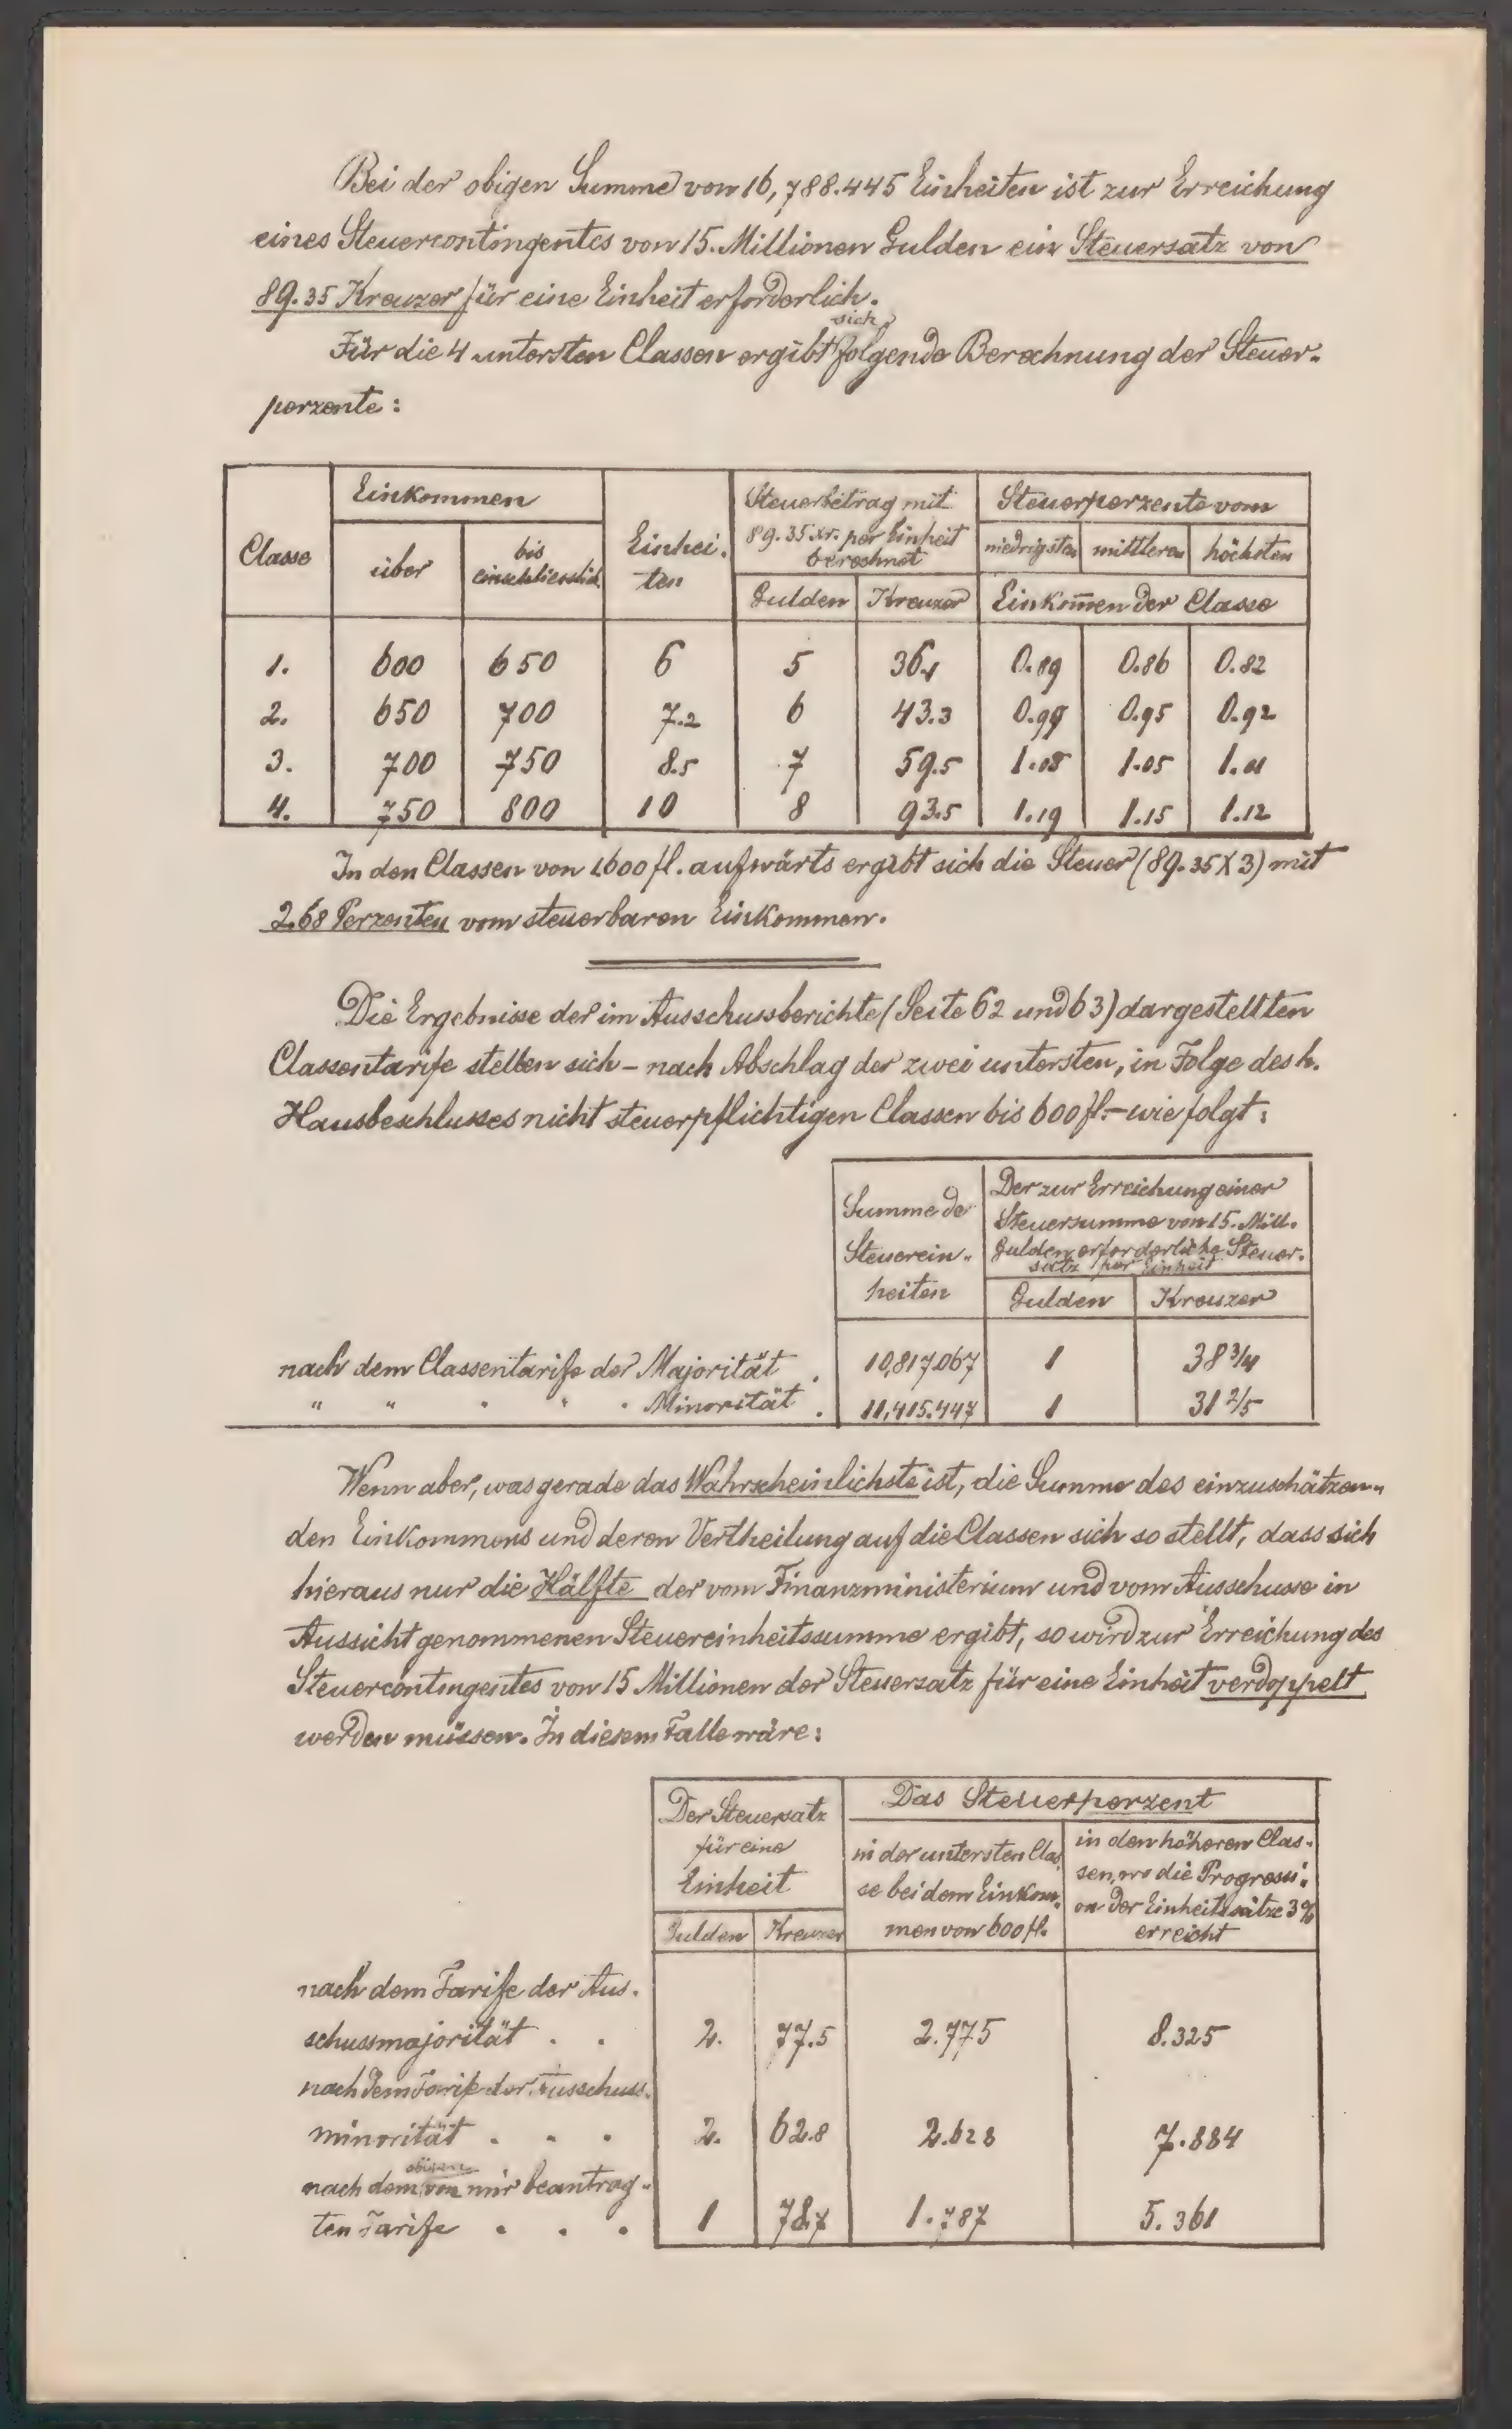 Bei der obigen Summe von 16,788.445 Einheiten ist zur Erreichung
eines Steuercontingentes von 15. Millionen Gulden ein Steuersatz von
89.35 Kreuzer für eine Einheit erforderlich.
sich
Für die 4 untersten Classen ergibt folgende Berechnung der Steuer-
perzente:
Classe | Einkommen | Einhei- | Steuerbetrag mit | Steuerperzente vom
über | bis | ten | 89.35 xr. per Einheit | niedrigsten | mittleren | höchsten
einschliesslich | berechnet
Gulden | Kreuzer | Einkom̅en der Classe
1. | 600 | 650 | 6 | 5 | 36.1 | 0.89 | 0.86 | 0.82
2. | 650 | 700 | 7.2 | 6 | 43.3 | 0.99 | 0.95 | 0.92
3. | 700 | 750 | 8.5 | 7 | 59.5 | 1.08 | 1.05 | 1.01
4. | 750 | 800 | 10 | 8 | 93.5 | 1.19 | 1.15 | 1.12
In den Classen von 1600 fl. aufwärts ergibt sich die Steuer (89.35 X 3) mit
2.68 Perzenten vom steuerbaren Einkommen.
Die Ergebnisse der im Ausschussberichte (Seite 62 und 63) dargestellten
Classentarife stellen sich – nach Abschlag der zwei untersten, in Folge des h.
Hausbeschlusses nicht steuerpflichtigen Classen bis 600 fl. – wie folgt:
Summe de | Der zur Erreichung einer
Steuersumme von 15. Mill.
Steuerein- | Gulden erforderliche Steuer-
satz per Einheit
heiten | Gulden | Kreuzer
nach dem Classentarife der Majorität . | 10,817.067 | 1 | 38 3/4
" " " " " Minorität . | 11,415.447 | 1 | 31 2/5
Wenn aber, was gerade das Wahrscheinlichste ist, die Summe des einzuschätzen-
den Einkommens und deren Vertheilung auf die Classen sich so stellt, dass sich
hieraus nur die Hälfte der vom Finanzministerium und vom Ausschusse in
Aussicht genommenen Steuereinheitssumme ergibt, so wird zur Erreichung des
Steuercontingentes von 15 Millionen der Steuersatz für eine Einheit verdoppelt
werden müssen. In diesem Falle wäre:
Der Steuersatz | Das Steuerperzent
für eine | in der untersten Clas- | in den höheren Clas-
Einheit | se bei dem Einkom- | sen, wo die Progressi-
men von 600 fl. | on der Einheitssätze 3%
Gulden | Kreuzer | erreicht
nach dem Tarife der Aus-
schussmajorität . . | 2. | 77.5 | 2.775 | 8.325
nach dem Tarife der Ausschuss-
minorität . . . | 2. | 62.8 | 2.628 | 7.884
obigen
nach dem von mir beantrag-
ten Tarife . . . | 1 | 78.7 | 1.787 | 5.361